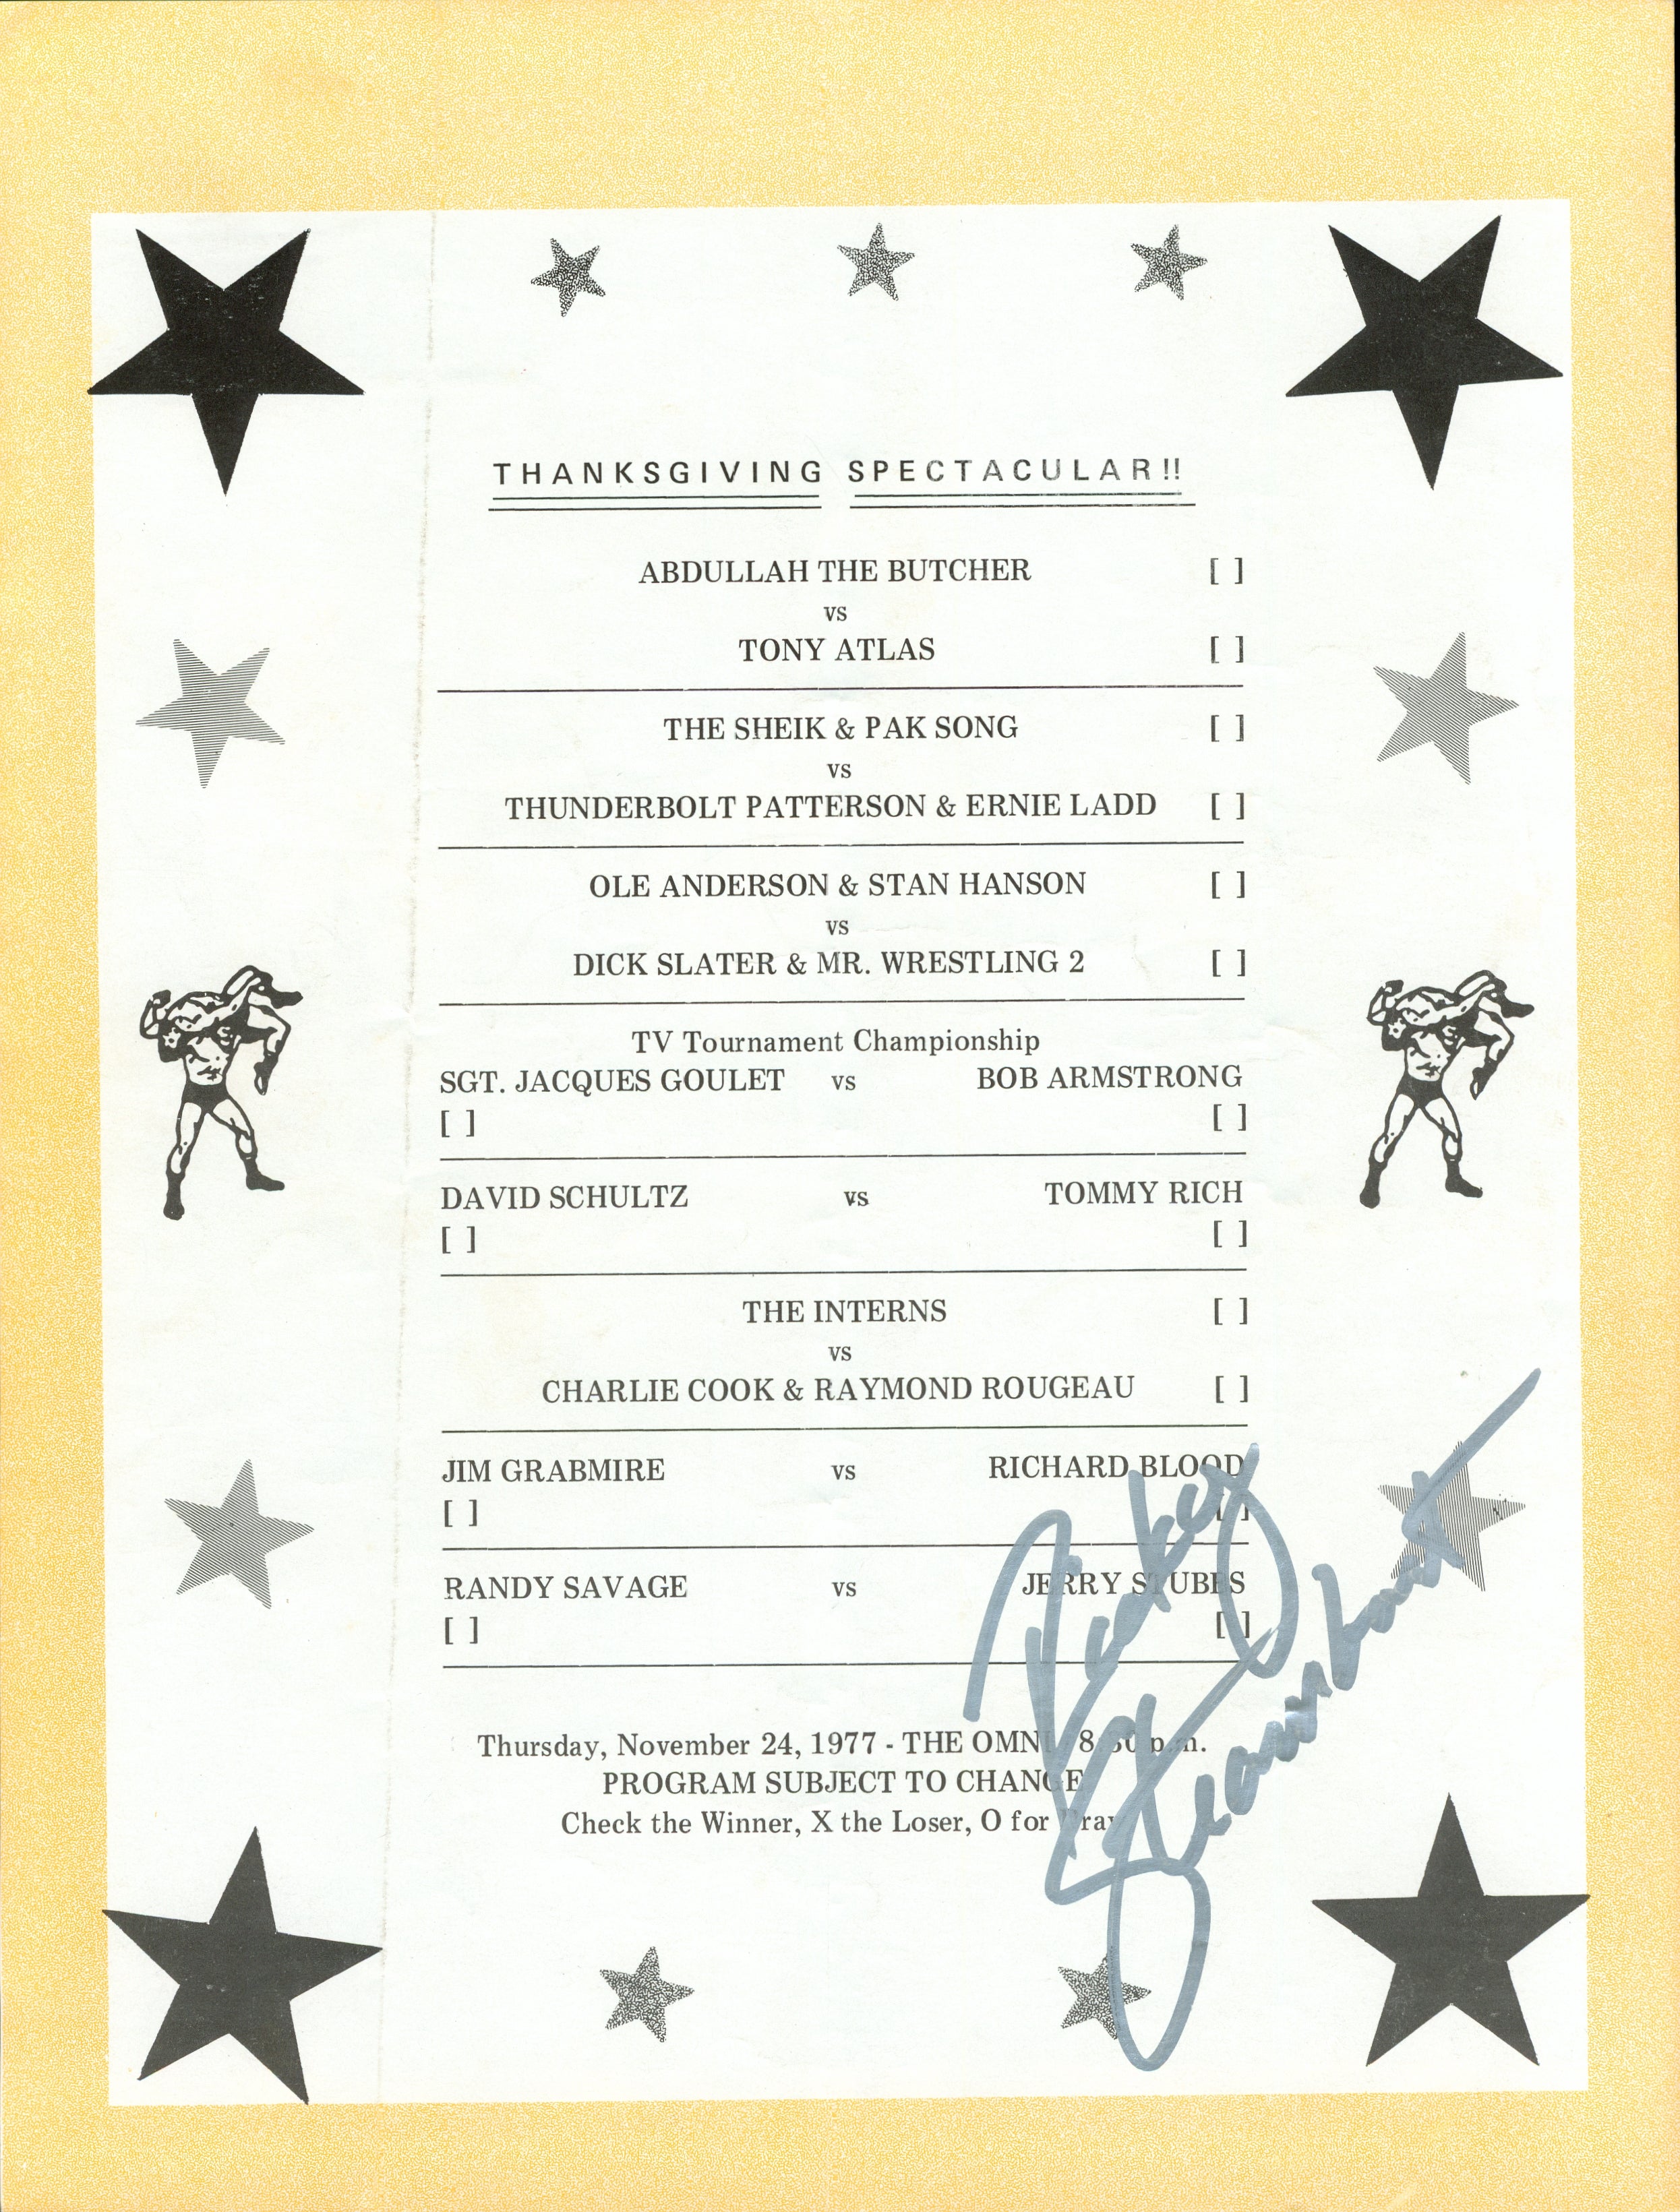 THANKSGIVING SPECTACULAR!!
ABDULLAH THE BUTCHER [ ]
vs
TONY ATLAS [ ]
THE SHEIK & PAK SONG [ ]
vs
THUNDERBOLT PATTERSON & ERNIE LADD [ ]
OLE ANDERSON & STAN HANSON [ ]
vs
DICK SLATER & MR. WRESTLING 2 [ ]
TV Tournament Championship
SGT. JACQUES GOULET vs BOB ARMSTRONG
[ ] [ ]
DAVID SCHULTZ vs TOMMY RICH
[ ] [ ]
THE INTERNS [ ]
vs
CHARLIE COOK & RAYMOND ROUGEAU [ ]
JIM GRABMIRE vs RICHARD BLOOD
[ ] [ ]
RANDY SAVAGE vs JERRY STUBBS
[ ] [ ]
Ricky Steamboat
Thursday, November 24, 1977 - THE OMNI 8:30 p.m.
PROGRAM SUBJECT TO CHANGE
Check the Winner, X the Loser, O for Draw